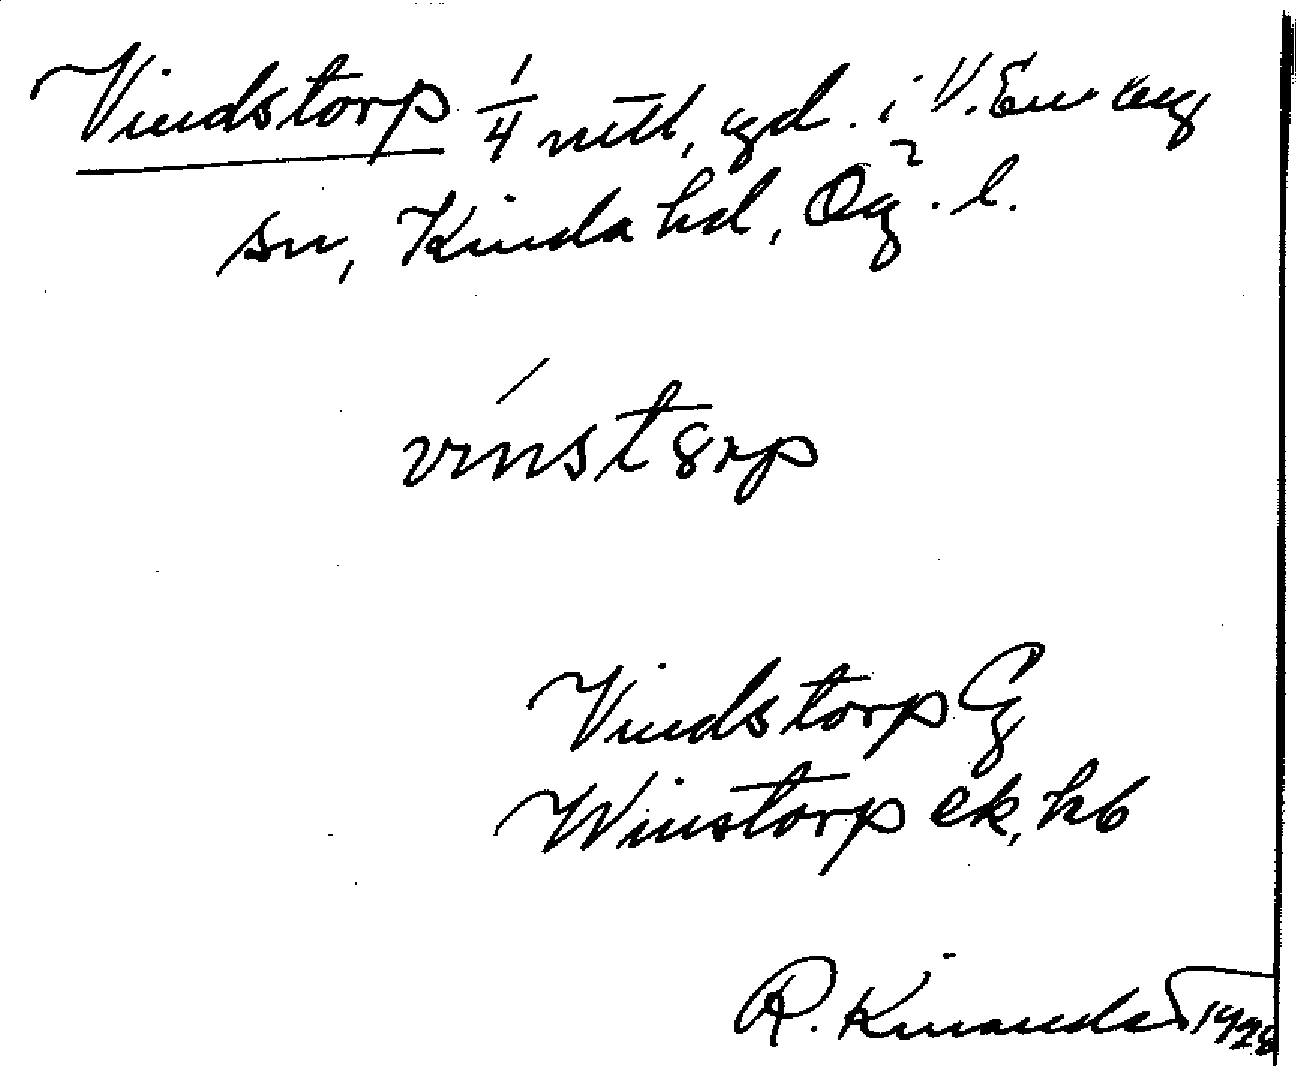 Vindstorp 1/4 mtl, gd. i V. Eneby
sn, Kinda hd, Ög. l.
vínst8rp
Vindstorp G
Winstorp ek, kb
R. Kinander 1928